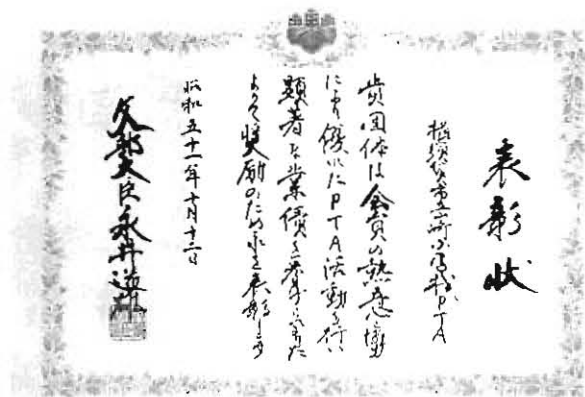 表彰状
横須賀市立山崎小学校PTA
貴団体は会員の熱意と協力
により優れたPTA活動を行い
顕著な業績を挙げられました
よって奨励のためこれを表彰します
昭和五十一年十月十二日
文部大臣永井道雄